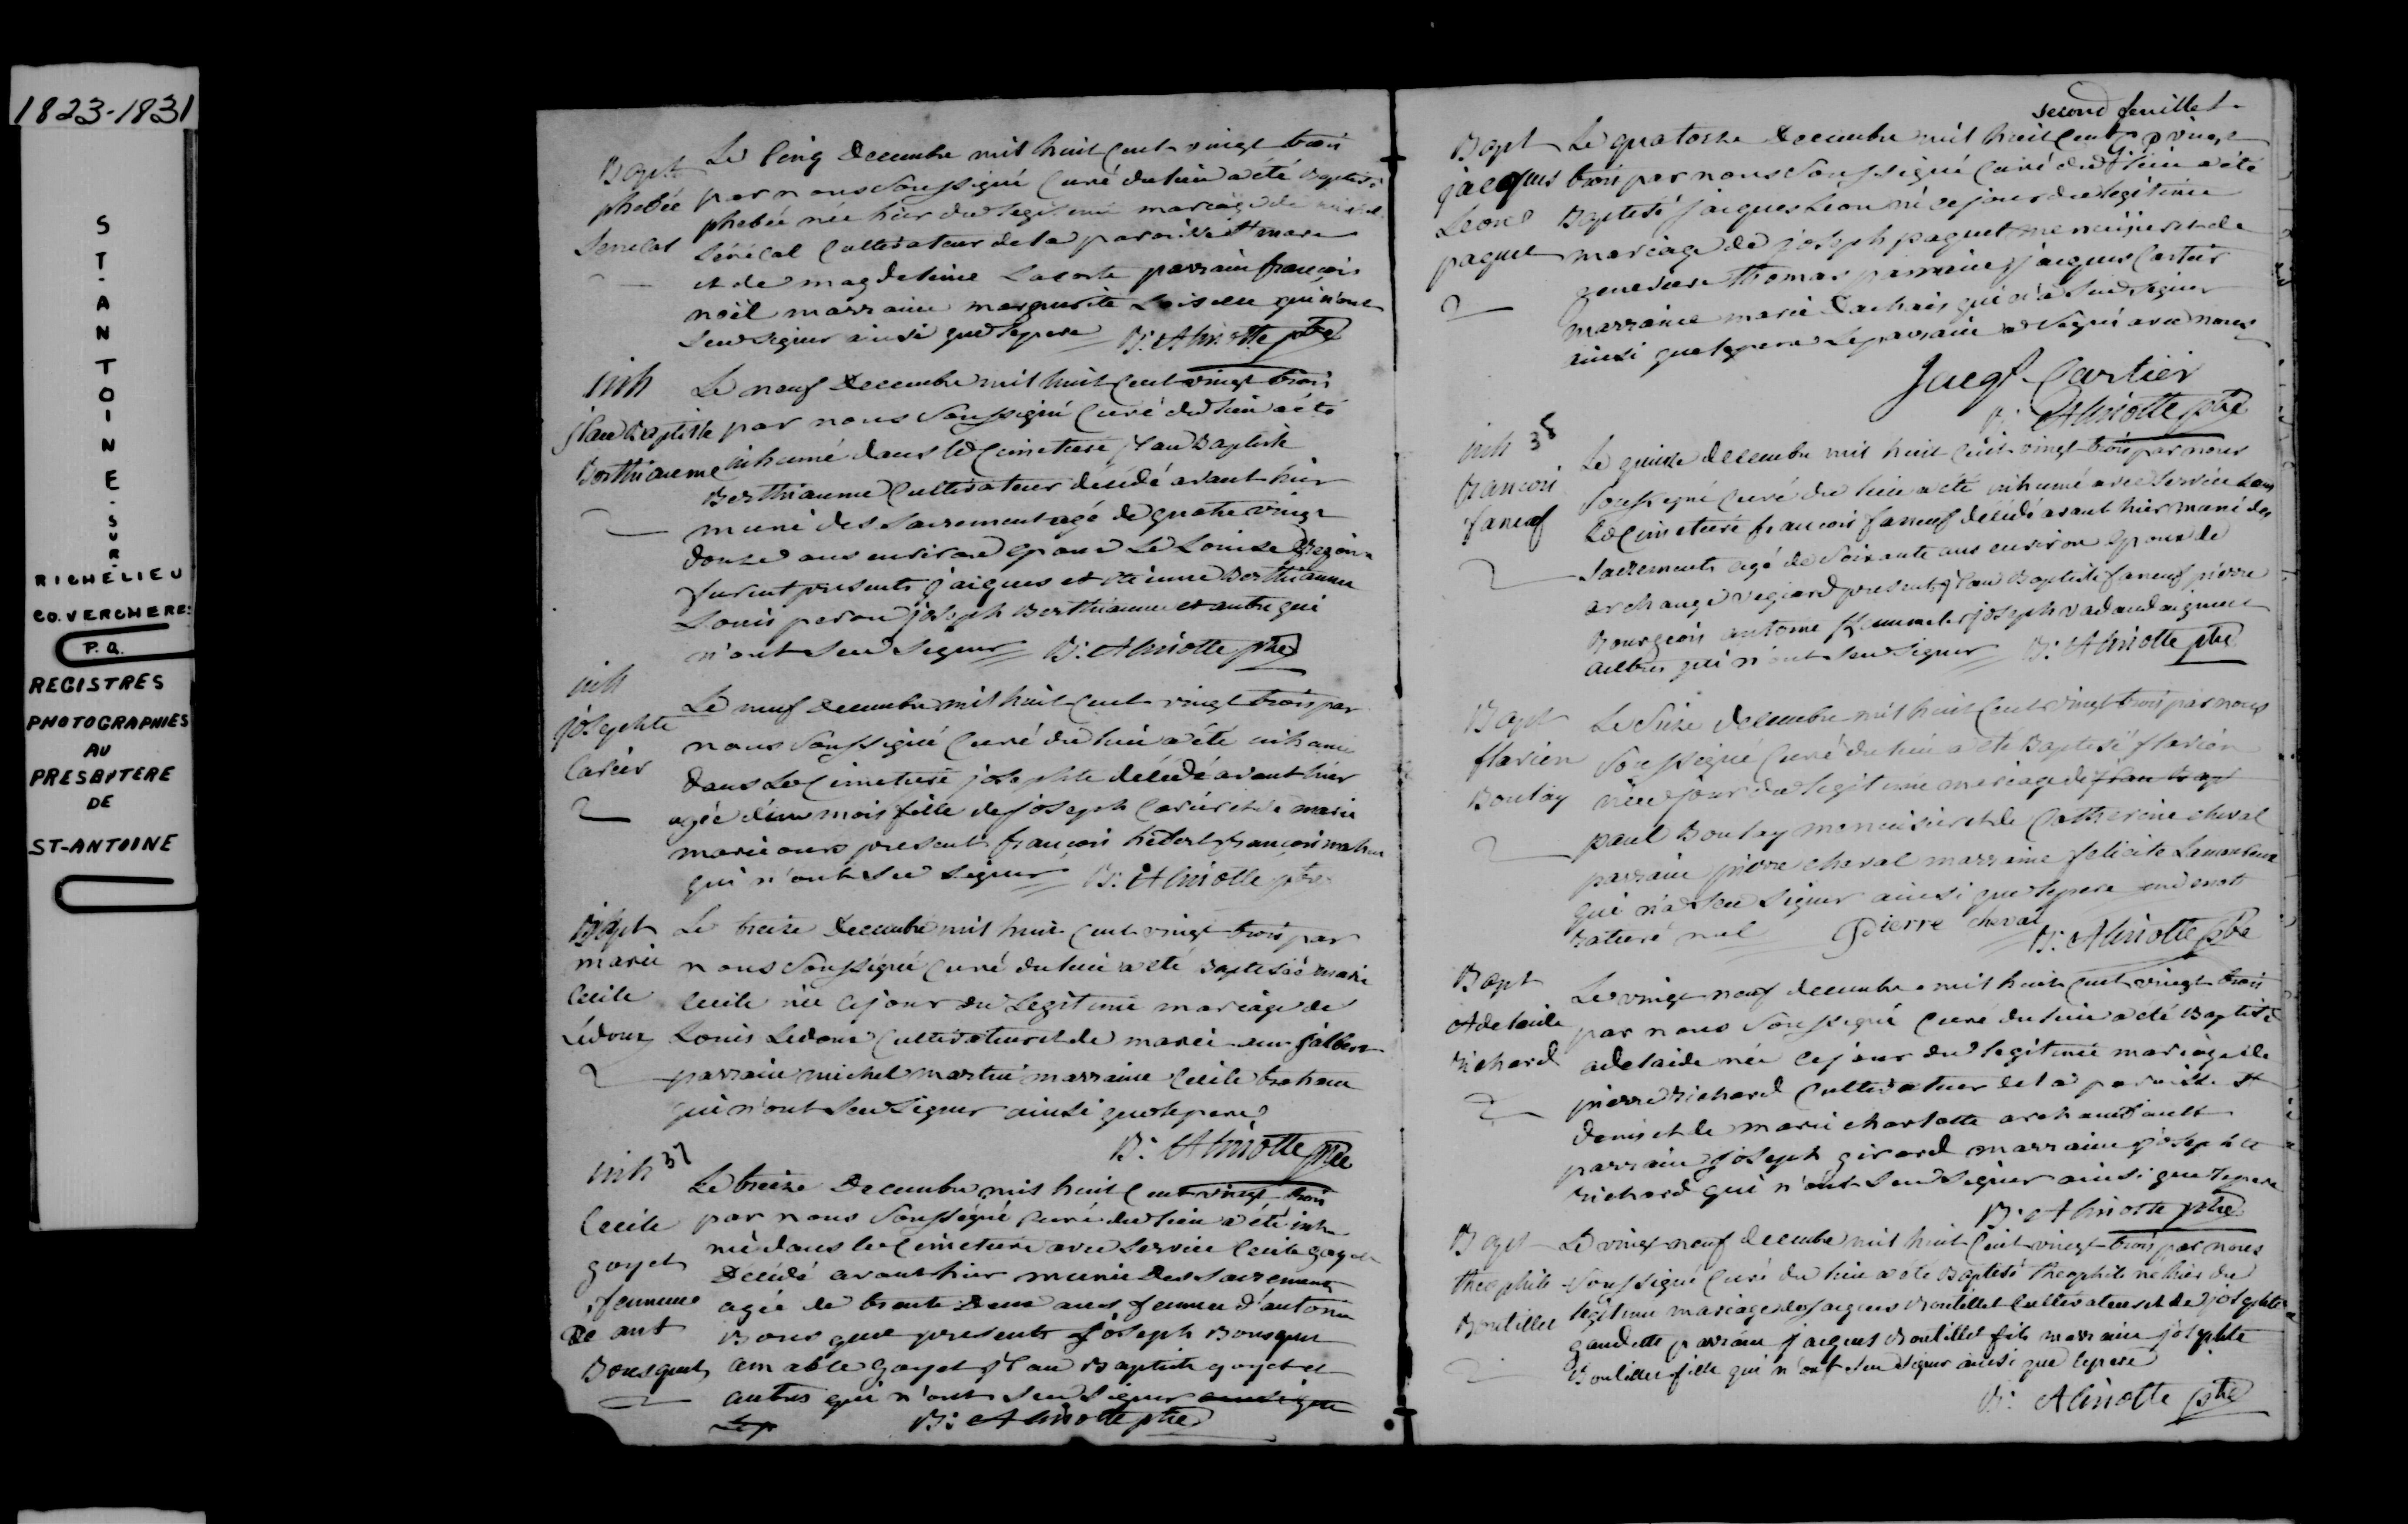 1823-1831
ST-ANTOINE-SUR-
RICHELIEU
CO. VERCHERES
P.Q.
REGISTRES
PHOTOGRAPHIES
AU
PRESBYTERE
DE
ST-ANTOINE
Bapt Le Cinq decembre mil huit cent vingt trois
phebée par nous soussigné Curé du lieu a été Baptisé
phebée née hier du legitime mariage de michel
Senecal Sénécal Cultivateur de la paroisse St marc
et de magdeleine Lacoste parrain françois
noël marraine marguerite Loiselle qui n'ont
seu signer ainsi que le pere B: Alinotte ptre
inh Le neuf Decembre mil huit Cent vingt trois
jean Baptiste par nous Soussigné Curé du lieu a été
Berthiaume inhumé dans le Cimetiere jean Baptiste
Berthiaume Cultivateur décédé avant hier
muni des Sacrement agé de quatre vingt
douze ans environ Epoux de Louise
furent presents jaiques et etienne Berthiaume
Louis peron joseph Berthiaume et autre qui
n'ont seu signer B: Alinotte ptre
inh
josephte Le neuf decembre mil huit Cent vingt trois par
nous Soussigné Curé du lieu a été inhumé
Carier dans le Cimetiere josephte décédé avant hier
agée d'un mois fille de joseph Carier et de marie
marie present françois hebert françois
qui n'ont seu signer B: Alinotte ptre
Bapt Le treize Decembre mil huit Cent vingt trois par
marie nous Soussigné Curé du lieu a été Baptisée marie
Cecile Cecile née cejour du Legitime mariage de
Ledoux Louis Ledoux Cultivateur et de marie jalbert
parrain michel martin marraine Cecile
qui n'ont seu signer ainsi que le pere
B: Alinotte ptre
inh 37
Le treize Decembre mil huit Cent vingt trois
Cecile par nous Soussigné Curé du lieu a été inh
goyet mé dans le Cimetiere avec Service Cecile goyet
Décédé avant hier munie des Sacrement
femme agée de trente deux ans femme d'antoine
de ant Bousquet presents joseph Bousquet
Bousquet amable goyet jean Baptiste goyet et
autres qui n'ont seu signer ainsi que
Le p B: Alinotte ptre
second feuillet
Bapt Le quatorze Decembre mil huit Cent vingt
jacques trois par nous Soussigné Curé du lieu a été
Leon Baptisé jaiques Leon né ce jour du legitime
paquet mariage de joseph paquet menuisier et de
genevieve Thomas parrain jaiques Cartier
marraine marie qui n'a seu signer
ainsi que le pere le parrain a signé avec nous
Jacqs Cartier
B: Alinotte ptre
inh 38
Le quinze decembre mil huit Cent vingt trois par nous
francois Soussigné Curé du lieu a été inhumé avec Service dans
faneuf le Cimetiere francois faneuf décédé avant hier muni des
Sacrements agé de Soixante ans environ Epoux de
archange presents jean Baptiste faneuf pierre
Bourgeois antoine joseph
autres qui n'ont seu signer B: Alinotte ptre
Bapt Le Seize decembre mil huit Cent vingt trois par nous
flavien Soussigné Curé du lieu a été Baptisé flavien
Boulay né cejour du legitime mariage de jean bap
paul Boulay menuisier et de Catherine cheval
parrain pierre cheval marraine felicite
qui n'a seu signer ainsi que le pere un mot
raturé nul Pierre cheval
B: Alinotte ptre
Bapt Le vingt neuf decembre mil huit Cent vingt trois
Adelaide par nous Soussigné Curé du lieu a été Baptisé
Richard adelaide née cejour du legitime mariage de
pierre Richard Cultivateur de la paroisse St
denis et de marie charlotte archambault
parrain joseph girard marraine josephte
Richard qui n'ont seu signer ainsi que le pere
B: Alinotte ptre
Bapt Le vingt neuf decembre mil huit Cent vingt trois par nous
theophile Soussigné Curé du lieu a été Baptisé theophile né hier du
Boutillet legitime mariage de jaiques Boutillet Cultivateur et de josephte
gaudette parrain jaiques Boutillet fils marraine josephte
Boutillet fille qui n'ont seu signer ainsi que le pere
B: Alinotte ptre